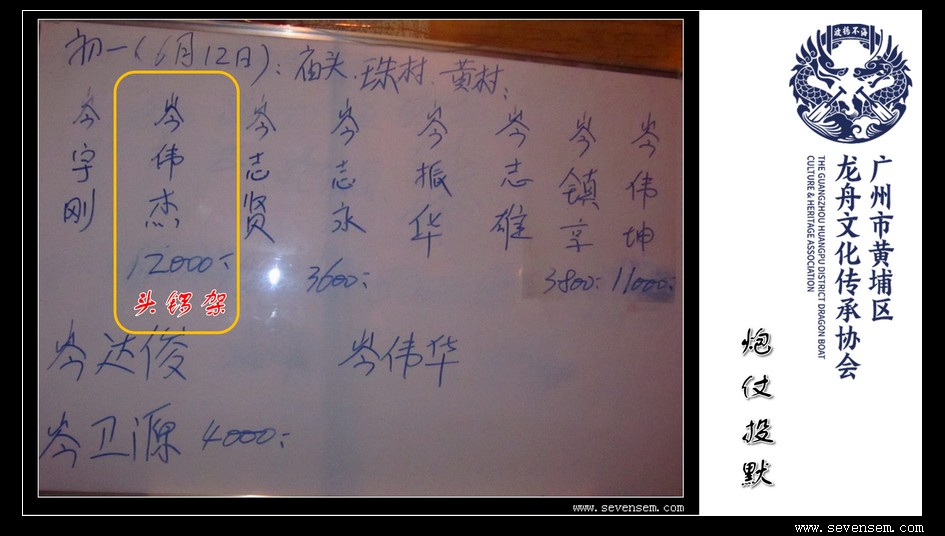 初一(6月12日)：庙头、珠村、黄村；
岑字刚
岑伟杰
12000：
头锣架
岑志贤
岑志永
3600：
岑振华
岑志雄
岑镇享
3800：
岑伟坤
11000：
岑达俊
岑伟华
岑卫源 4000：
www.sevensem.com
波扬不海
广州市黄埔区
龙舟文化传承协会
THE GUANGZHOU HUANGPU DISTRICT DRAGON BOAT
CULTURE & HERITAGE ASSOCIATION
炮仗投默
www.sevensem.com